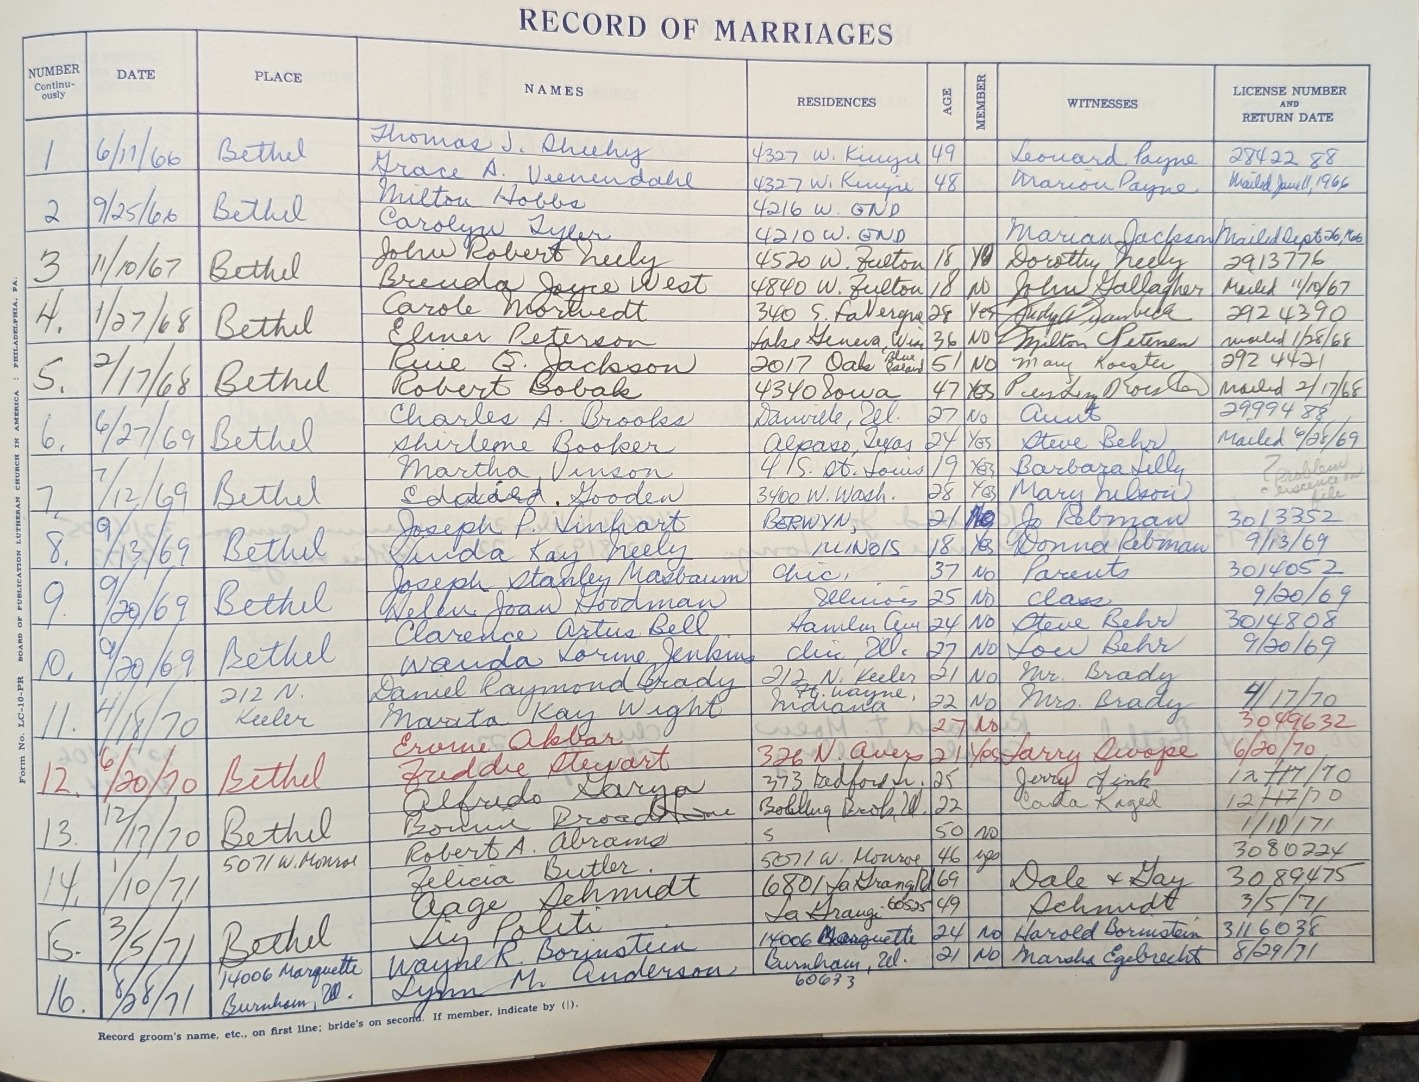 RECORD OF MARRIAGES
NUMBER Continu-ously DATE PLACE NAMES RESIDENCES AGE MEMBER WITNESSES LICENSE NUMBER AND RETURN DATE
1 6/11/66 Bethel Thomas J. Sheehy 4327 W. 49 Leonard Payne 28422 88
Grace A. Veenendahl 4327 W. 48 Marion Payne Mailed June 11, 1966
2 9/25/66 Bethel Milton Hobbs 4216 W. GND
Carolyn Tyler 4210 W. GND Marian Jackson Mailed Sept 26, 1966
3 11/10/67 Bethel John Robert Neely 4520 W. Fulton 18 Dorothy Neely 2913776
Brenda Joyce West 4840 W. Fulton 18 NO John Gallagher Mailed 11/10/67
4. 1/27/68 Bethel Carole Mortvedt 340 S. LaVergne 28 Yes 292 4390
Elmer Peterson Lake Geneva, Wis 36 NO Milton C Petersen mailed 1/28/68
5. 2/17/68 Bethel Jackson 2017 Oak Blue Island 51 NO Mary Koester 292 4421
Robert Bobak 4340 Iowa 47 Yes Mailed 2/17/68
6. 6/27/69 Bethel Charles A. Brooks Danville, Ill. 27 No Aunt 2999488
Shirlene Booker Alpaso, Texas 24 Yes Steve Behr Mailed 6/28/69
7. 7/12/69 Bethel Martha Vinson 41 S. St. Louis 19 Yes Barbara Lilly ? problem
Gooden 3400 W. Wash. 28 Yes Mary Nelson file
8. 9/13/69 Bethel Joseph P. Vinhart BERWYN, 21 No Jo Rebman 3013352
Linda Kay Neely ILLINOIS 18 Yes Donna Rebman 9/13/69
9. 9/20/69 Bethel Joseph Stanley Masbaum Chic. 37 No Parents 3014052
Helen Joan Goodman Illinois 25 No class 9/20/69
10. 9/20/69 Bethel Clarence Artus Bell Hamlin Ave 24 No Steve Behr 3014808
Wanda Lorine Jenkins Chic, Ill. 27 No Lou Behr 9/20/69
11. 4/18/70 212 N. Keeler Daniel Raymond Brady 212 N. Keeler 21 No Mr. Brady
Marita Kay Wight Ft. Wayne, Indiana 22 No Mrs. Brady 4/17/70
12. 6/20/70 Bethel Akbar 27 No 3049632
Freddie Stewart 326 N. Avers 21 Yes Larry Swope 6/20/70
13. 12/17/70 Bethel Alfredo Garza 373 Bedford Ln. 25 Jerry Fink 12/17/70
Bonnie Bolling Brook, Ill. 22 Carla Kagel 12/17/70
14. 1/10/71 5071 W. Monroe Robert A. Abrams s 50 no 1/10/71
Felicia Butler. 5071 W. Monroe 46 yes 3080224
15. 3/5/71 Bethel Aage Schmidt 6801 La Grange Rd 69 Dale & Gay 3089475
Politi La Grange 60525 49 Schmidt 3/5/71
16. 8/28/71 14006 Marquette Burnham, Ill. Wayne R. Borinstein 14006 Marquette 24 No Harold Borinstein 3116038
Lynn M. Anderson Burnham, Ill. 60633 21 No Marsha Egebrecht 8/29/71
Record groom's name, etc., on first line; bride's on second. If member, indicate by (|).
Form No. LC-10-PR BOARD OF PUBLICATION LUTHERAN CHURCH IN AMERICA : PHILADELPHIA, PA.